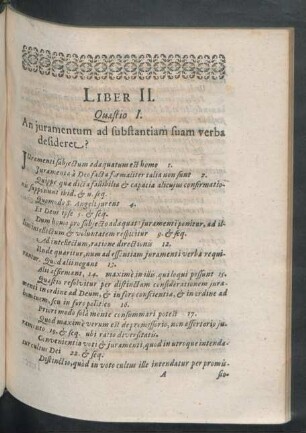 LIBER II.
Quæstio I.
An juramentum ad substantiam suam verba
desideret?
Juramenti subjectum adæquatum est homo 1.
Juramenta à Deo facta formaliter talia non sunt 2.
Quippe qua dicta fallibilia & capacia alicujus confirmatio-
nis supponunt ibid. & n. seq.
Quomodo S. Angeli jurent 4.
Et Deus ipse 5. & seq.
Dum homo pro subjecto adæquat. juramenti ponitur, ad il-
lius intellectum & voluntatem respicitur 9. & seq.
Ad intellectum, ratione directionis 12.
Unde quæritur, num ad essentiam juramenti verba requi-
rantur. Quod alii negant 13.
Alii affirmant, 14. maximè in illis, qui loqui possunt 15.
Quæstio resolvitur per distinctam considerationem jura-
menti in ordine ad Deum, & in foro conscientia, & in ordine ad
hominem, seu in foro politico 16.
Priori modo solâ mente consummari potest 17.
Quod maximè verum est de promissorio, non assertorio ju-
ramento 19. & seq. ubi ratio diversitatis
Convenientia voti & juramenti, quod in utroque intenda-
tur cultus Dei 22. & seq.
Distinctio, quod in voto cultus ille intendatur per promis-
A sio-